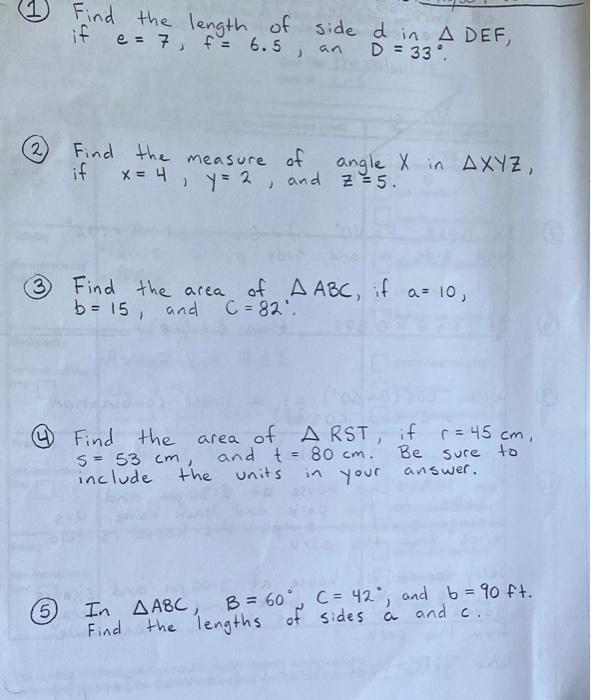 ① Find the length of side d in Δ DEF,
if e = 7, f = 6.5, an D = 33°.
② Find the measure of angle X in ΔXYZ,
if x = 4, y = 2, and z = 5.
③ Find the area of Δ ABC, if a = 10,
b = 15, and C = 82°.
④ Find the area of Δ RST, if r = 45 cm,
s = 53 cm, and t = 80 cm. Be sure to
include the units in your answer.
⑤ In ΔABC, B = 60°, C = 42°, and b = 90 ft.
Find the lengths of sides a and c.